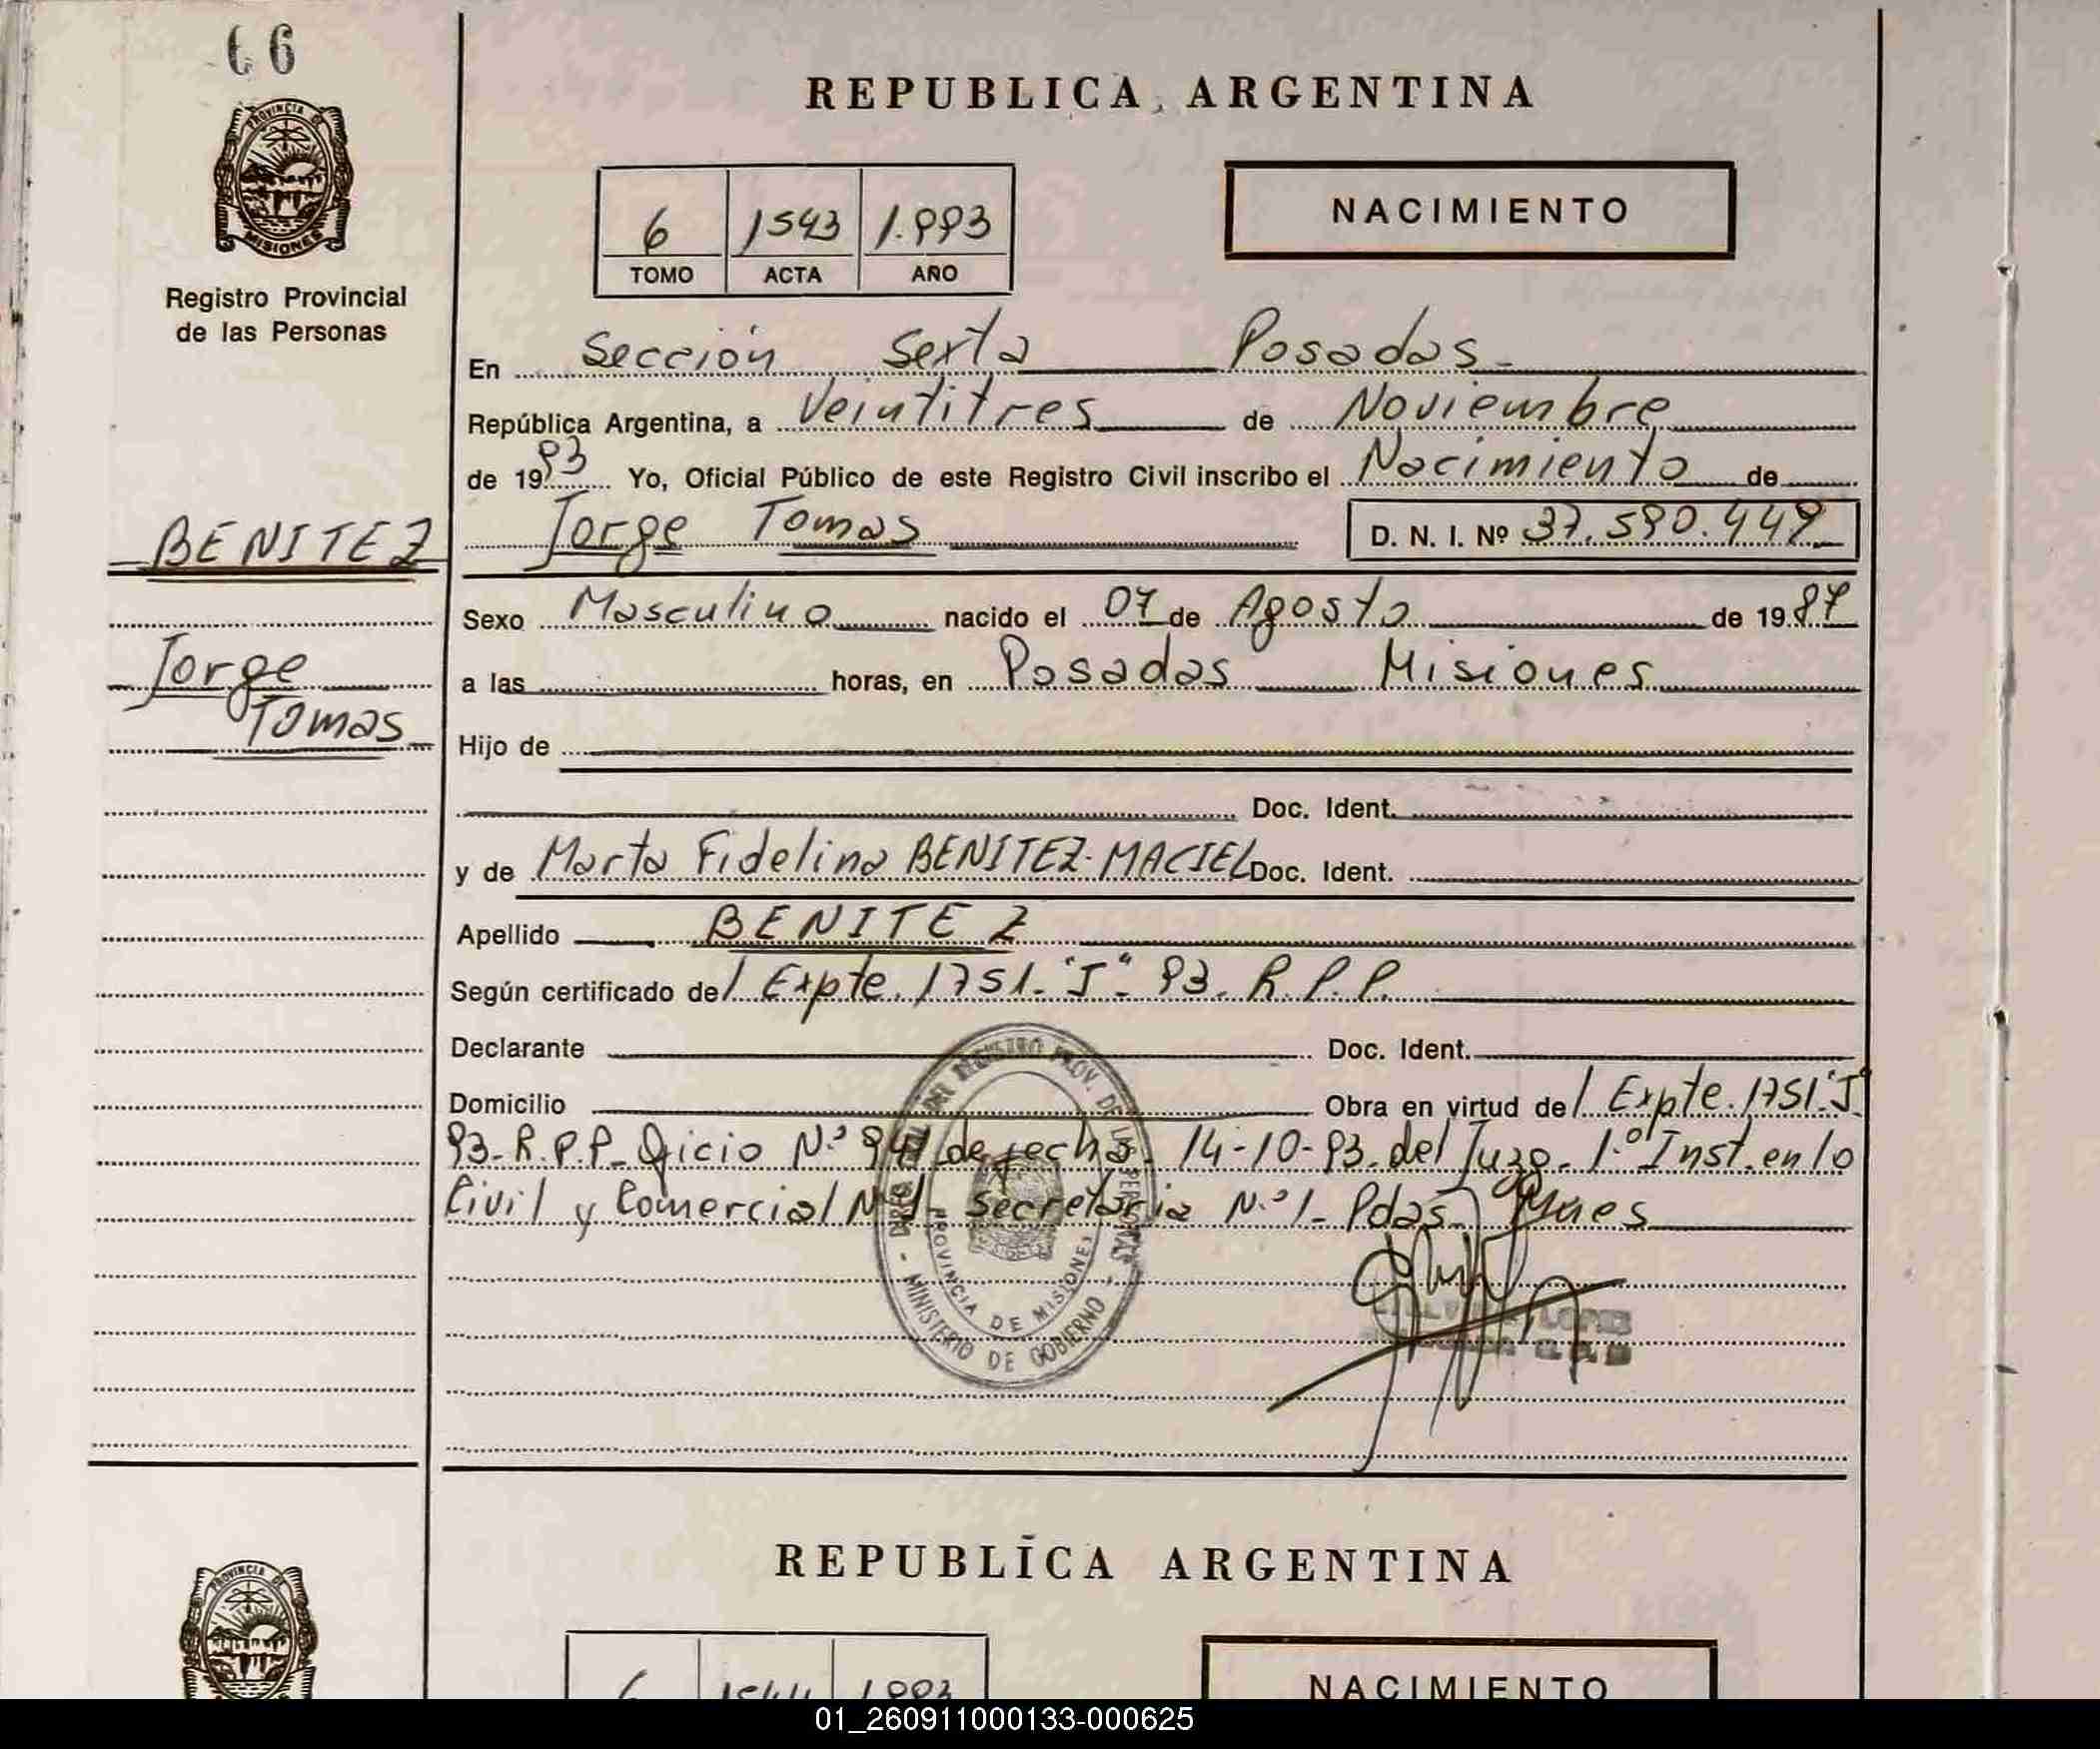 66
REPUBLICA ARGENTINA
PROVINCIA DE
MISIONES
Registro Provincial
de las Personas
6 1543 1.993
TOMO ACTA AÑO
NACIMIENTO
En Sección Sexta Posadas
República Argentina, a Veintitres de Noviembre
de 1993 Yo, Oficial Público de este Registro Civil inscribo el Nacimiento de
BENITEZ
Jorge Tomas D. N. I. Nº 37.590.449
Sexo Masculino nacido el 07 de Agosto de 1987
Jorge
Tomas
a las horas, en Posadas Misiones
Hijo de
Doc. Ident.
y de Marta Fidelina BENITEZ-MACIEL Doc. Ident.
Apellido BENITEZ
Según certificado de/ Expte. 1751-"J"-93. R.P.P.
Declarante Doc. Ident.
Domicilio Obra en virtud de/ Expte. 1751-"J"
93-R.P.P- Oficio N.º 941 de fecha 14-10-93 del Juzg. 1.º Inst. en lo
Civil y Comercial Nº 1 Secretaria N.º 1- Pdas Mnes
REGISTRO PROV. DE LAS PERSONAS
PROVINCIA DE MISIONES
MINISTERIO DE GOBIERNO
LOPEZ
REPUBLICA ARGENTINA
PROVINCIA DE
6 1544 1993
NACIMIENTO
01_260911000133-000625